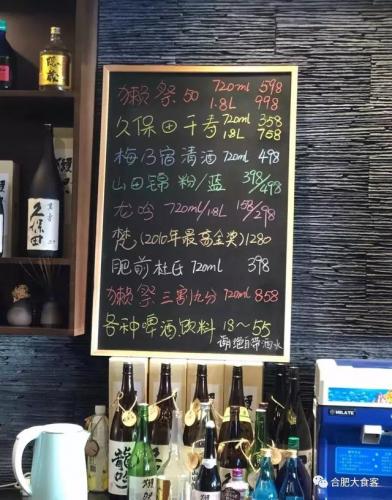 獭祭50 720ml 598
1.8L 998
久保田千寿 720ml 358
1.8L 758
梅乃宿清酒 720ml 498
山田锦 粉/蓝 398/498
龙吟 720ml/1.8L 158/298
梵(2010年最高金奖)1280
肥前杜氏 720ml 398
獭祭三割九分 720ml 858
各种啤酒.饮料 18～55
谢绝自带酒水
隠蔵
久保田
龍吟
MILATE
合肥大食客